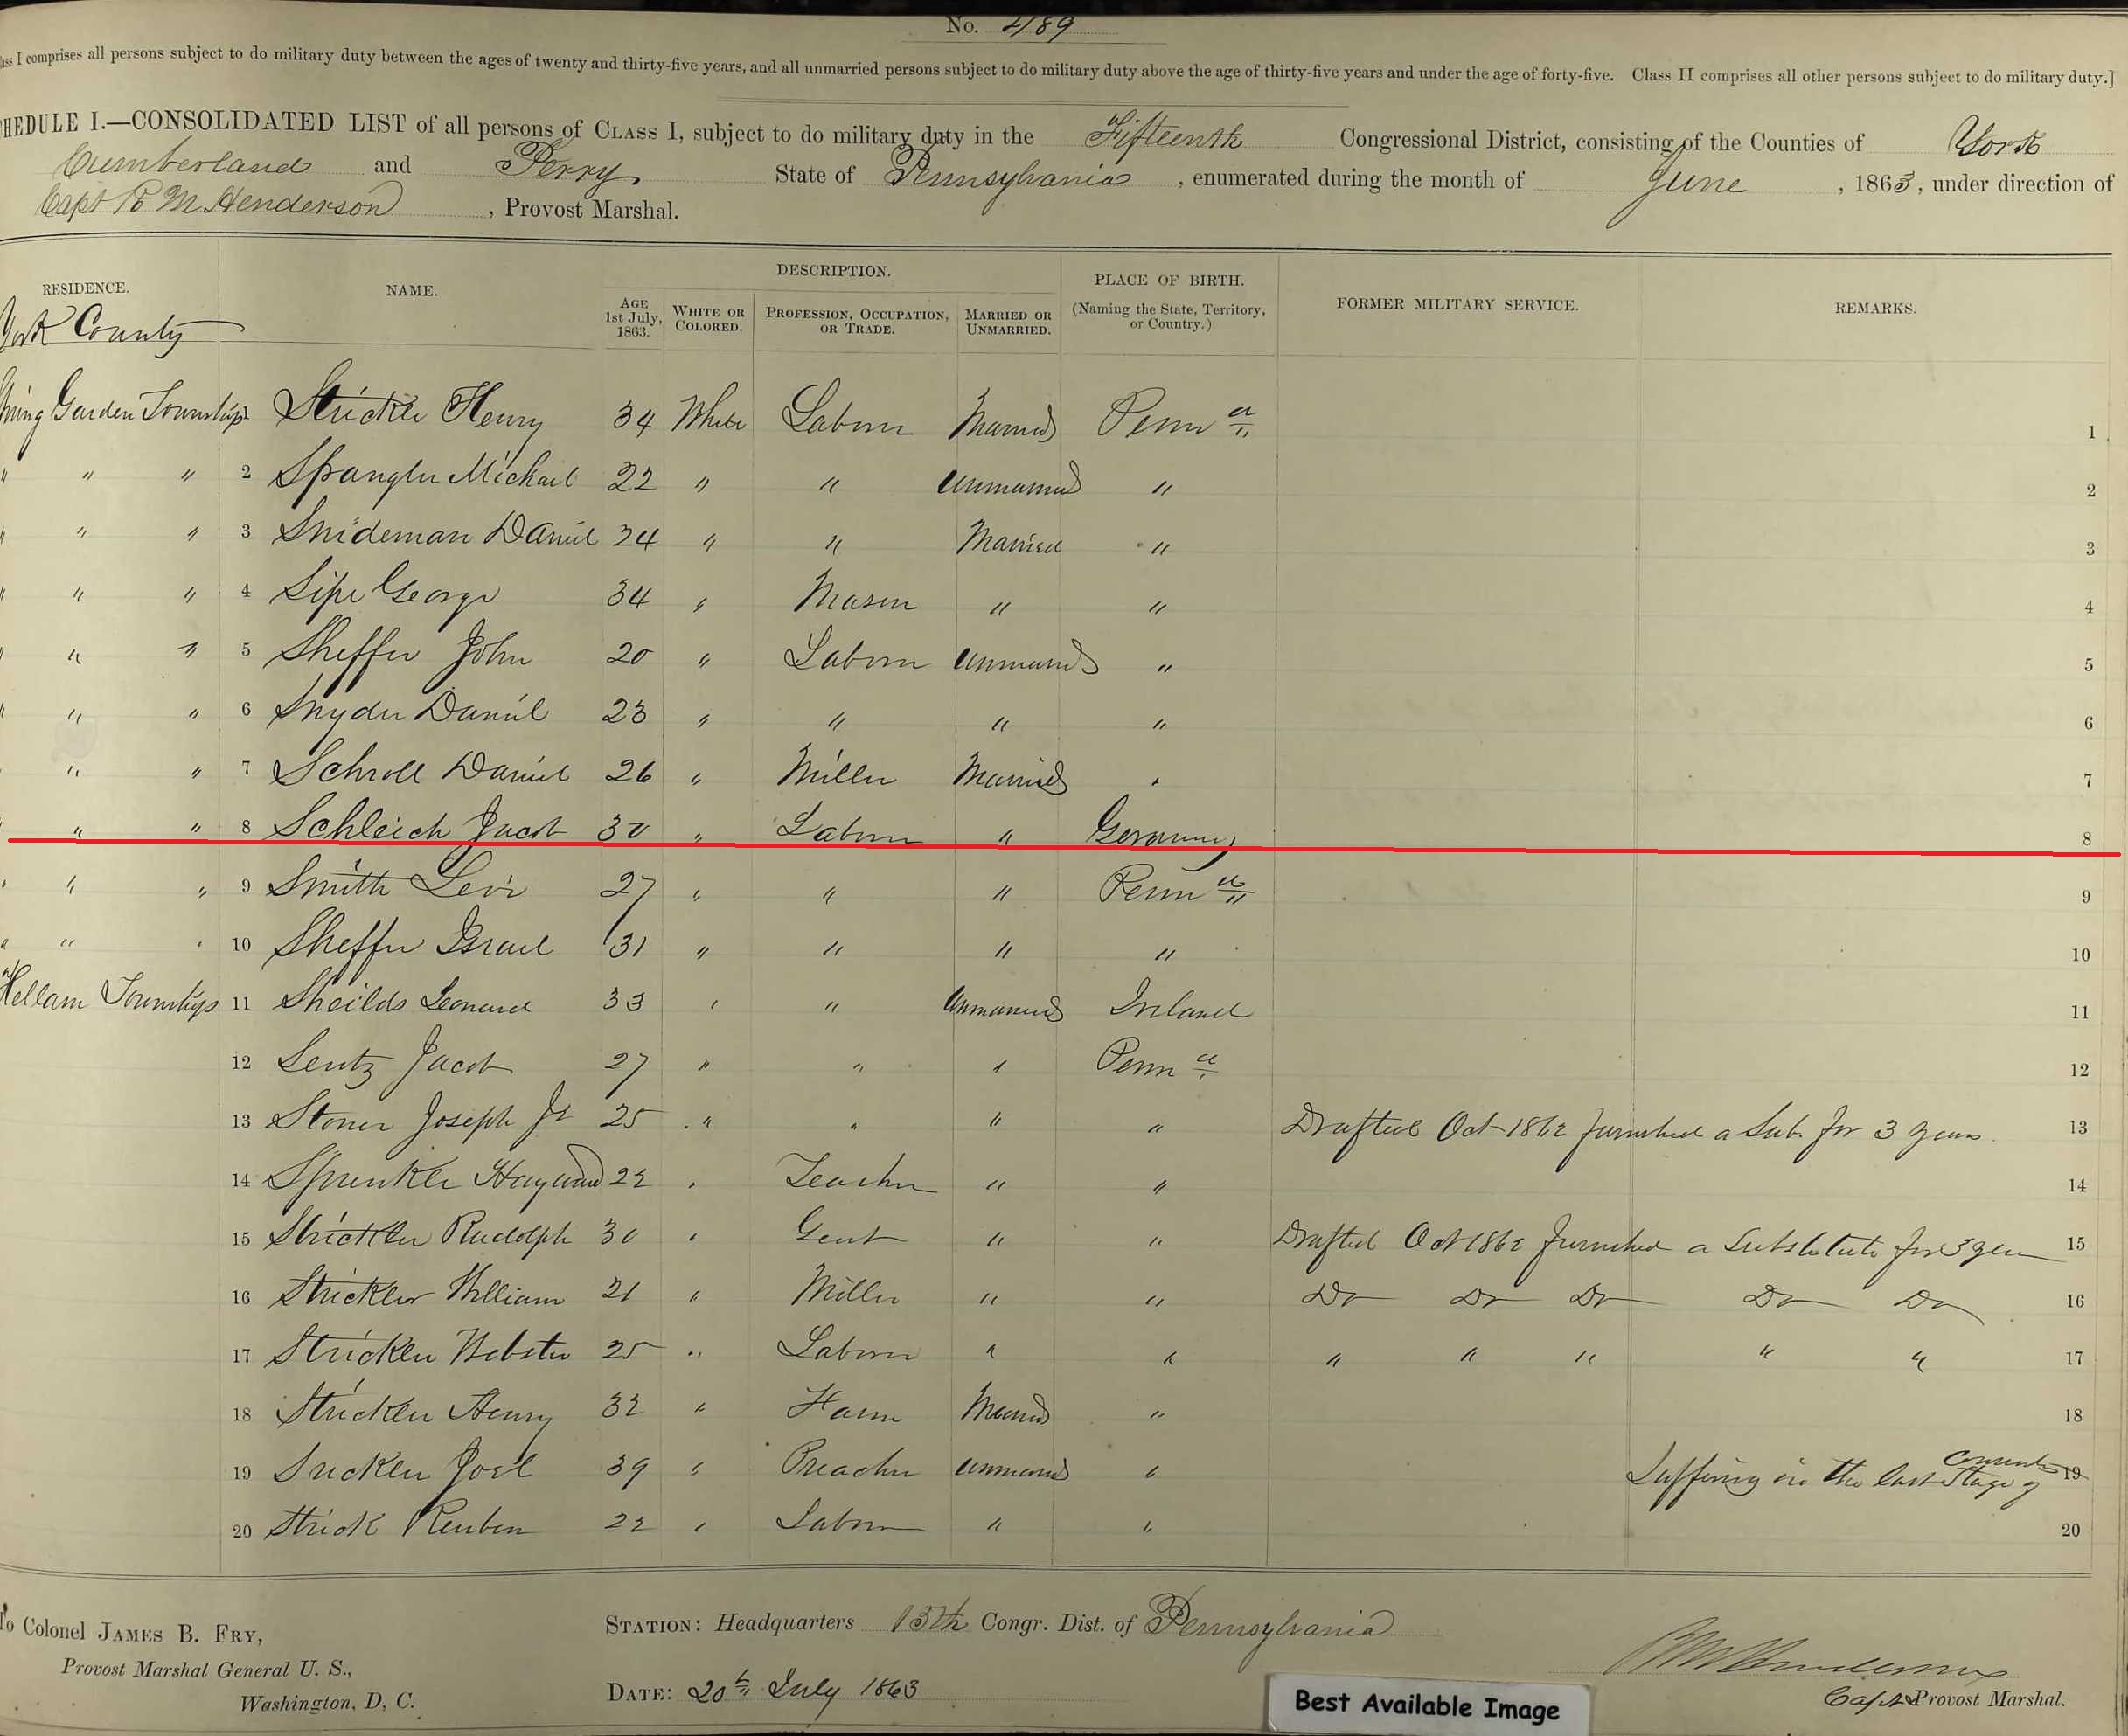 No. 489
ass I comprises all persons subject to do military duty between the ages of twenty and thirty-five years, and all unmarried persons subject to do military duty above the age of thirty-five years and under the age of forty-five. Class II comprises all other persons subject to do military duty.]
HEDULE I.—CONSOLIDATED LIST of all persons of CLASS I, subject to do military duty in the Fifteenth Congressional District, consisting of the Counties of York
Cumberland and Perry State of Pennsylvania, enumerated during the month of June, 1863, under direction of
Capt R M Henderson, Provost Marshal.
RESIDENCE. NAME. DESCRIPTION. PLACE OF BIRTH. FORMER MILITARY SERVICE. REMARKS.
AGE 1st July, 1863. WHITE OR COLORED. PROFESSION, OCCUPATION, OR TRADE. MARRIED OR UNMARRIED. (Naming the State, Territory, or Country.)
York County
Spring Garden Township 1 Strickle Henry 34 White Laborer Married Penna 1
" " " 2 Spangler Michael 22 " " Unmarried " 2
" " " 3 Snideman Daniel 24 " " Married " 3
" " " 4 Sipe George 34 " Mason " " 4
" " " 5 Sheffer John 20 " Laborer Unmarried " 5
" " " 6 Snyder Daniel 23 " " " " 6
" " " 7 Schroll Daniel 26 " Miller Married " 7
" " " 8 Schleich Jacob 30 " Laborer " Germany 8
" " " 9 Smith Levi 27 " " " Penna 9
" " " 10 Sheffer Israel 31 " " " " 10
Hellam Township 11 Sheilds Leonard 33 " " Unmarried Ireland 11
12 Lentz Jacob 27 " " " Penna 12
13 Stoner Joseph Jr 25 " " " " Drafted Oct 1862 furnished a Sub. for 3 years 13
14 Sprenkle Hayward 22 " Teacher " " 14
15 Strickler Rudolph 30 " Gent " " Drafted Oct 1862 furnished a Substitute for 3 years 15
16 Strickler William 21 " Miller " " Do Do Do Do Do 16
17 Strickler Webster 25 " Laborer " " " " " " " 17
18 Strickler Henry 32 " Farmer Married " 18
19 Strickler Joel 39 " Preacher Unmarried " Suffering in the last Stage of 19
20 Strick Reuben 22 " Laborer " " 20
To Colonel JAMES B. FRY,
Provost Marshal General U. S.,
Washington, D, C.
STATION: Headquarters 15th Congr. Dist. of Pennsylvania
DATE: 20th July 1863
R M Henderson
Capt & Provost Marshal.
Best Available Image